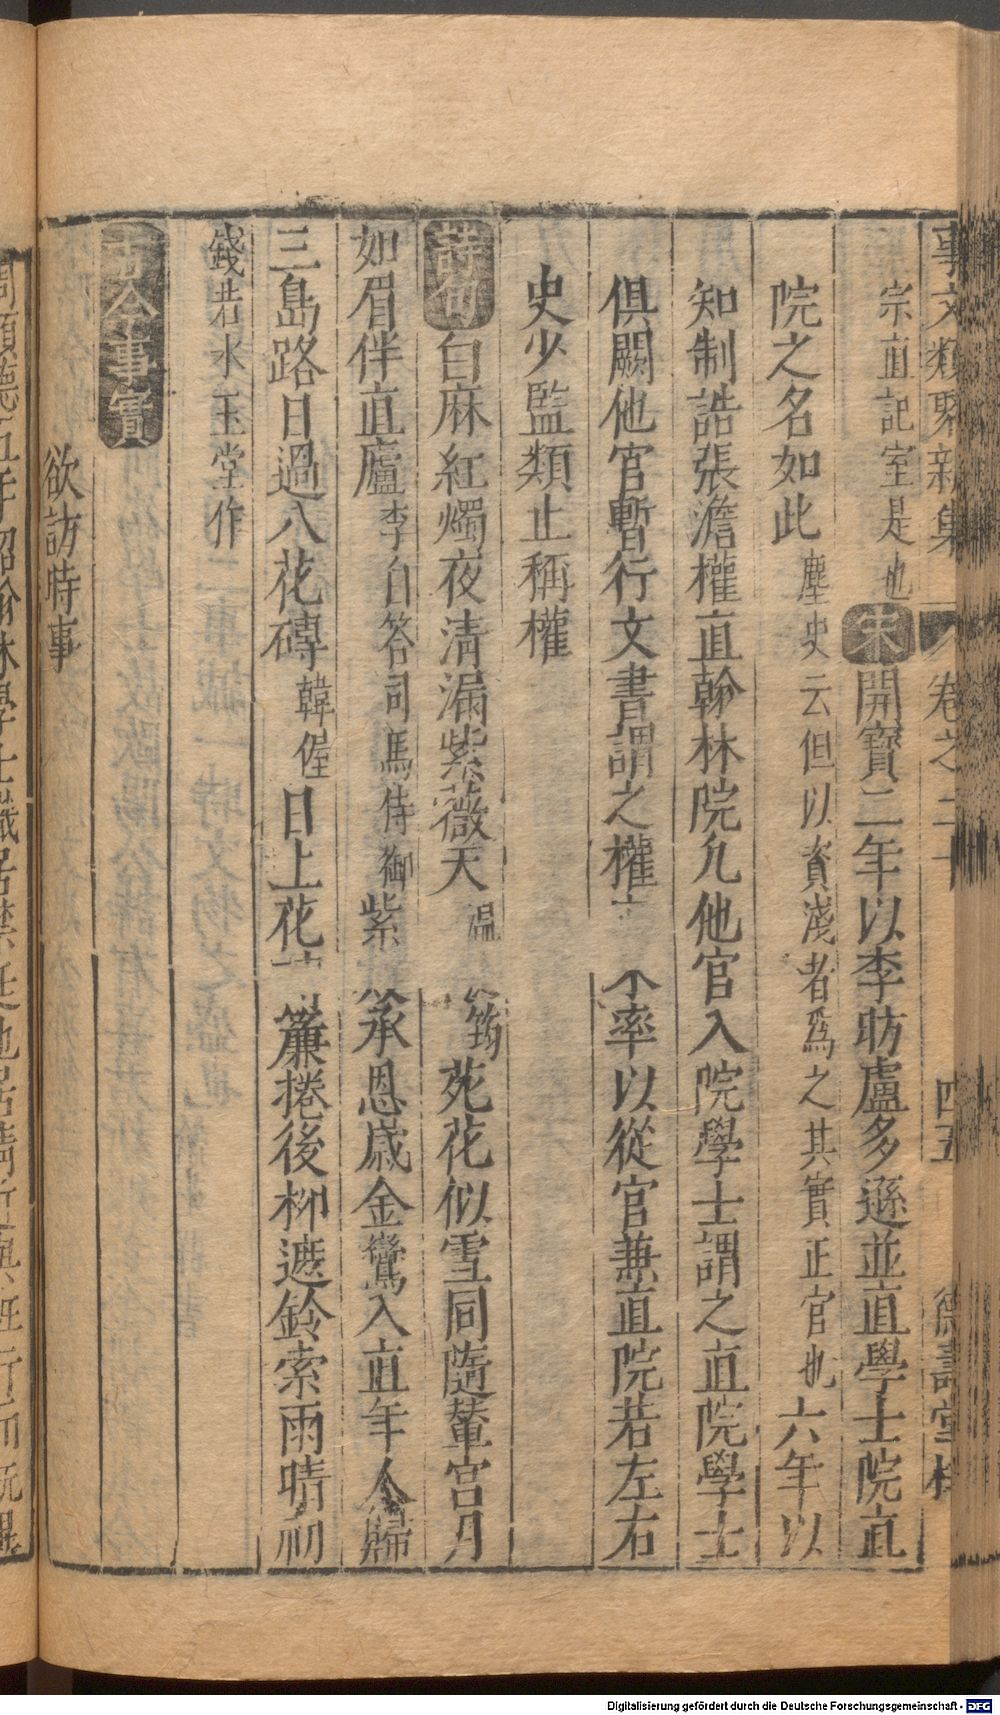 事文類聚新集 卷之二十 四五 德壽堂梓
宗直記室是也宋開寶二年以李昉盧多遜並直學士院直
院之名如此麈史云但以資淺者爲之其實正官也六年以
知制誥張澹權直翰林院凡他官入院學士謂之直院學士
俱闕他官暫行文書謂之權 率以從官兼直院若左右
史少監類止稱權
詩句白麻紅燭夜清漏紫薇天温 筠苑花似雪同隨輦宮月
如眉伴直廬李白答司馬侍御紫 承恩歲金鑾入直年人歸
三島路日過八花磚韓偓日上花 簾捲後柳遮鈴索雨晴初
錢若水玉堂作
古今事實
欲訪時事
Digitalisierung gefördert durch die Deutsche Forschungsgemeinschaft - DFG